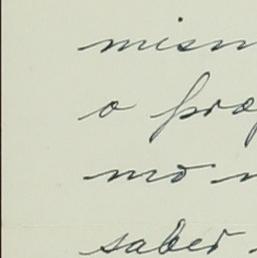 mism
o prop
mo n
saber